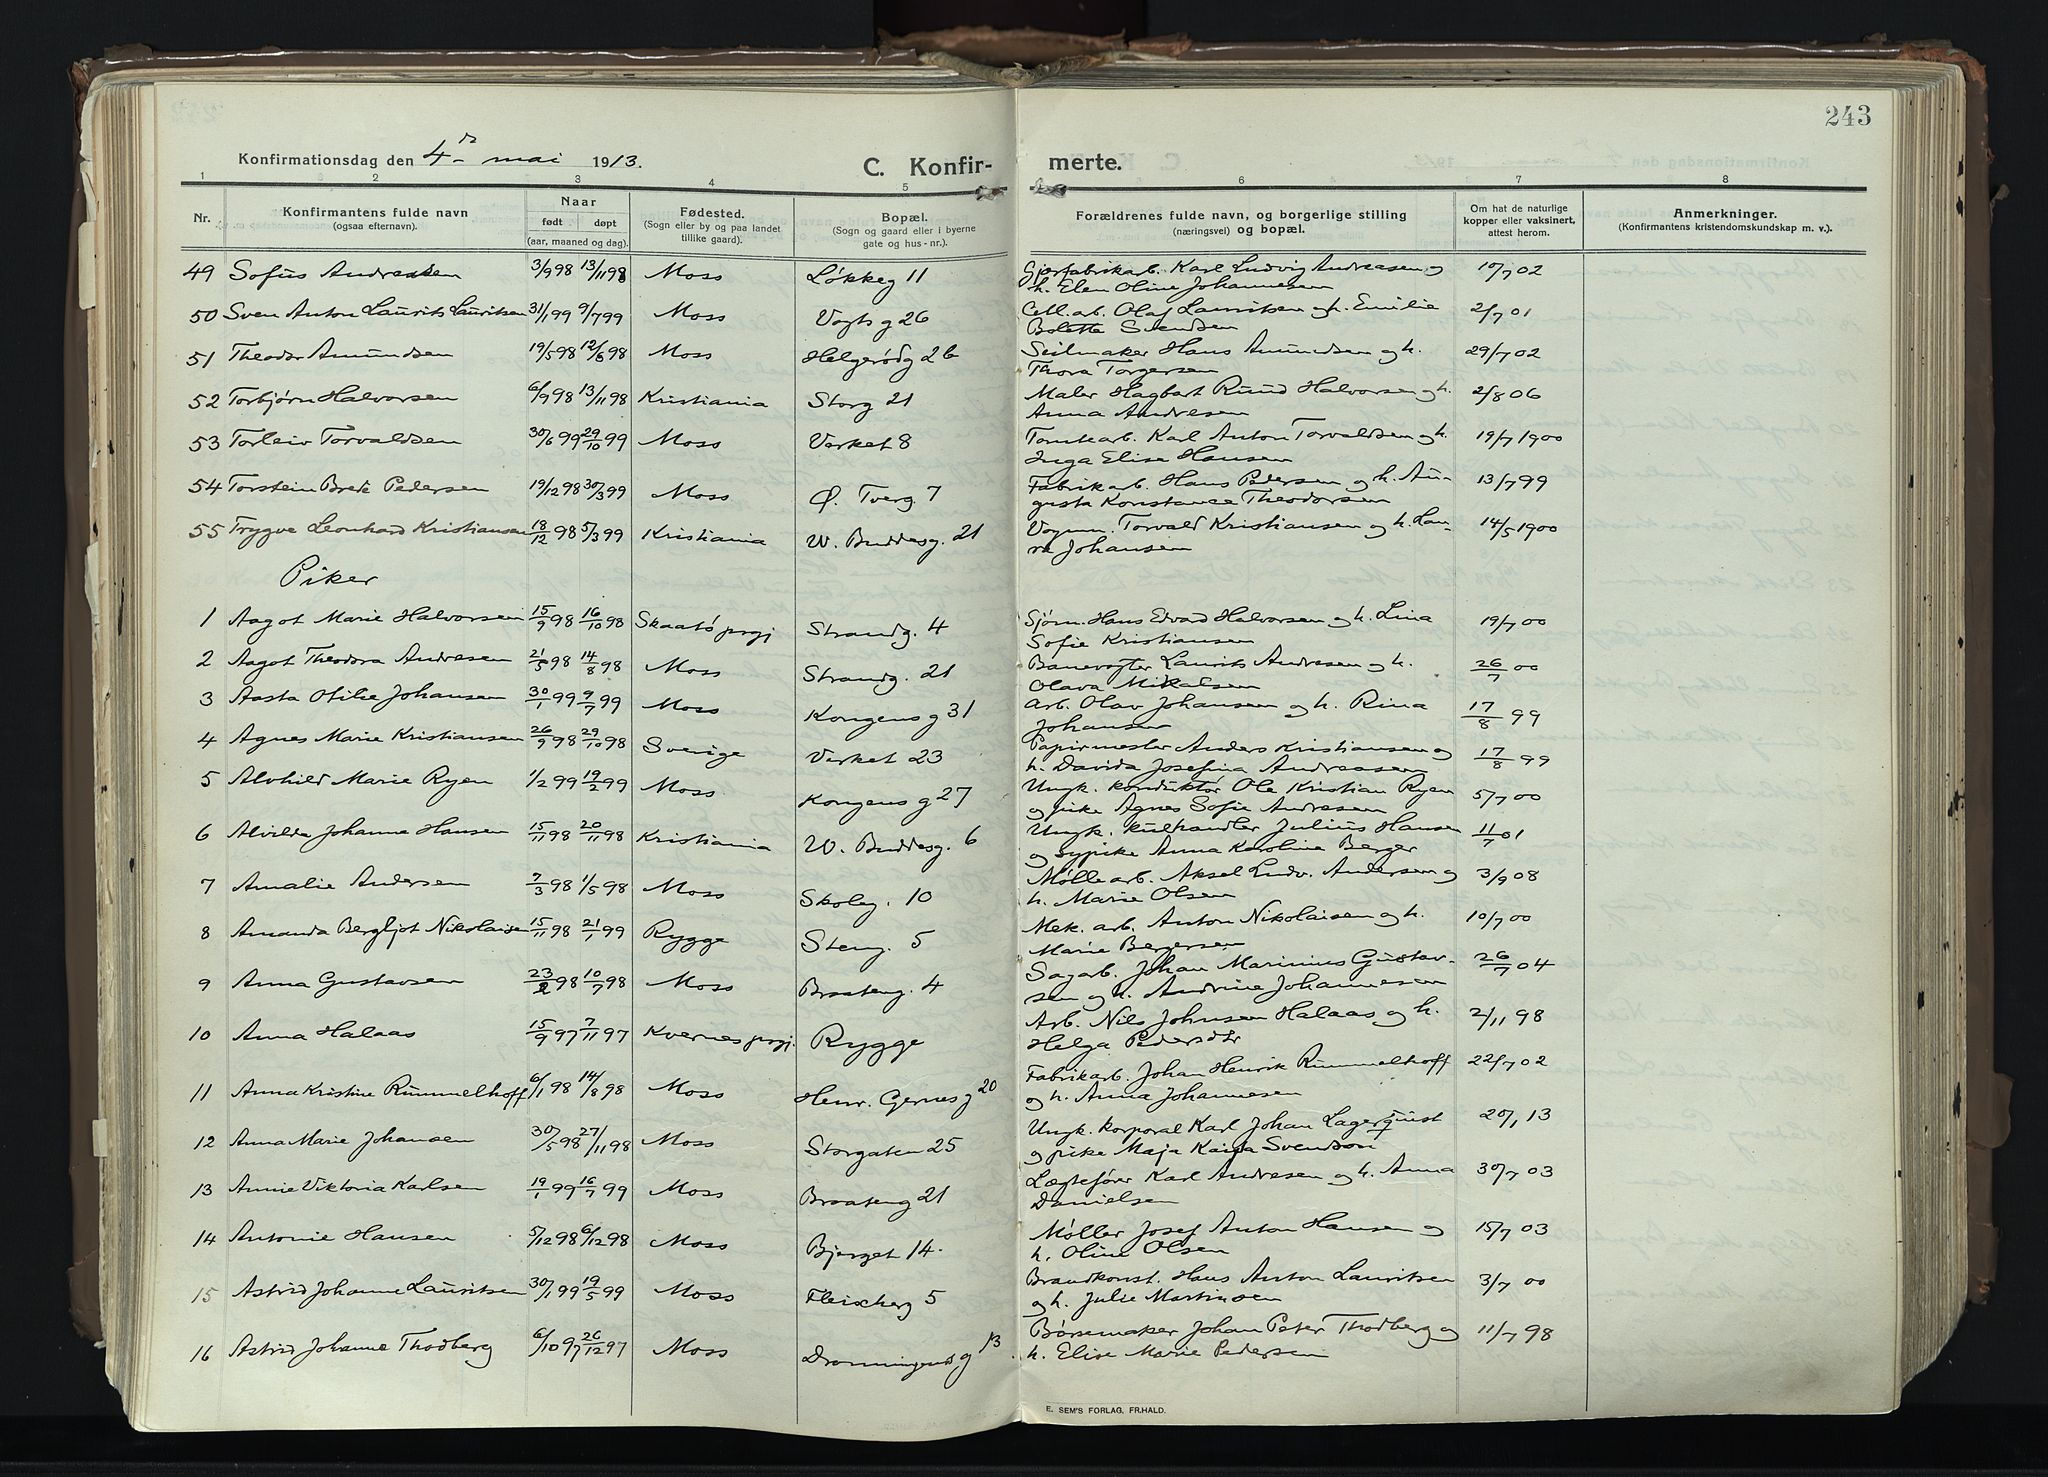 243
Konfirmationsdag den 4. mai 1913.
C. Konfir- merte.
1 2 3 4 5 6 7 8
Nr. Konfirmantens fulde navn (ogsaa efternavn). Naar født døpt (aar, maaned og dag). Fødested. (Sogn eller by og paa landet tillike gaard). Bopæl. (Sogn og gaard eller i byerne gate og hus-nr.). Forældrenes fulde navn, og borgerlige stilling (næringsvei) og bopæl. Om hat de naturlige kopper eller vaksinert, attest herom. Anmerkninger. (Konfirmantens kristendomskundskap m. v.).
49 Sofus Andreasen 3/9 98 13/11 98 Moss Løkkeg 11 Karl Ludvig Andreasen og h. Elen Oline Johannesen 10/7 02
50 Sven Anton Laurits Lauritsen 31/1 99 9/7 99 Moss Vogts g 26 Cell. arb. Olaf Lauritsen og h. Emilie Bolette Svendsen 2/7 01
51 Theodor Amundsen 19/5 98 12/6 98 Moss Helgerødg 26 Seilmaker Hans Amundsen og h. Thora Torgersen 29/7 02
52 Torbjørn Halvorsen 6/9 98 13/11 98 Kristiania Storg 21 Maler Hagbart Ruud Halvorsen og h. Anna Andresen 2/8 06
53 Torleiv Torvaldsen 30/6 99 29/10 99 Moss Verket 8 Tomtearb. Karl Anton Torvaldsen og h. Inga Elise Hansen 19/7 1900
54 Torstein Brede Pedersen 19/12 98 30/3 99 Moss Ø. Tverg. 7 Fabrikarb. Hans Pedersen og h. Augusta Konstance Theodorsen 13/7 99
55 Trygve Leonhard Kristiansen 18/12 98 5/3 99 Kristiania W. Buddesg. 21 Vognm. Torvald Kristiansen og h. Laura Johansen 14/5 1900
Piker
1 Aagot Marie Halvorsen 15/9 98 16/10 98 Skaatø prgj Strandg. 4 Sjøm. Hans Edvard Halvorsen og h. Lina Sofie Kristiansen 19/7 00
2 Aagot Theodora Andresen 21/5 98 14/8 98 Moss Strandg. 21 Banevogter Laurits Andresen og h. Olava Mikalsen 26/7 00
3 Aasta Otilie Johansen 30/1 99 9/7 99 Moss Kongens g 31 Arb. Olav Johansen og h. Rina Johansen 17/8 99
4 Agnes Marie Kristiansen 26/9 98 29/10 98 Sverige Verket 23 Papirmester Anders Kristiansen og h. Davida Josefina Andreasen 17/8 99
5 Alvhild Marie Ryen 1/2 99 19/2 99 Moss Kongens g 27 Ungk. konduktør Ole Kristian Ryen og pike Agnes Sofie Andresen 5/7 00
6 Alvilda Johanne Hansen 15/11 98 20/11 98 Kristiania W. Buddesg. 6 Ungk. kulhandler Julius Hansen og sypike Anna Karoline Berger 11/7 01
7 Amalie Andersen 7/3 98 1/5 98 Moss Skoleg. 10 Møllearb. Aksel Ludv. Andersen og h. Marie Olsen 3/9 08
8 Amanda Bergljot Nikolaisen 15/11 98 21/1 99 Rygge Steng. 5 Mek. arb. Anton Nikolaisen og h. Marie Bergersen 10/7 00
9 Anna Gustavsen 23/2 98 10/7 98 Moss Braateng. 4 Sagarb. Johan Marinius Gustavsen og h. Andrine Johannesen 26/7 04
10 Anna Halaas 15/9 97 7/11 97 Kvernes prgj. Rygge Arb. Nils Johnsen Halaas og h. Helga Pedersdtr 2/11 98
11 Anna Kristine Rummelhoff 6/1 98 14/8 98 Moss Henr. Gernes g 20 Fabrikarb. Johan Henrik Rummelhoff og h. Anna Johannesen 22/7 02
12 Anna Marie Johansen 30/5 98 27/11 98 Moss Storgaten 25 Ungk. korporal Karl Johan Lagerquist og pike Maja Kaisa Svendson 20/1 13
13 Annie Viktoria Karlsen 19/1 99 16/7 99 Moss Braateng 21 Lægtefører Karl Andresen og h. Anna Danielsen 30/7 03
14 Antonie Hansen 5/12 98 6/12 98 Moss Bjerget 14. Møller Josef Anton Hansen og h. Oline Olsen 15/7 03
15 Astrid Johanne Lauritsen 30/1 99 19/5 99 Moss Fleischerg 5 Brandkonst. Hans Anton Lauritsen og h. Julie Martinsen 3/7 00
16 Astrid Johanne Thodberg 6/10 97 26/12 97 Moss Dronningens g 13. Børsemaker Johan Peter Thodberg og h. Elise Marie Pedersen 11/7 98
E. SEM'S FORLAG, FR.HALD.